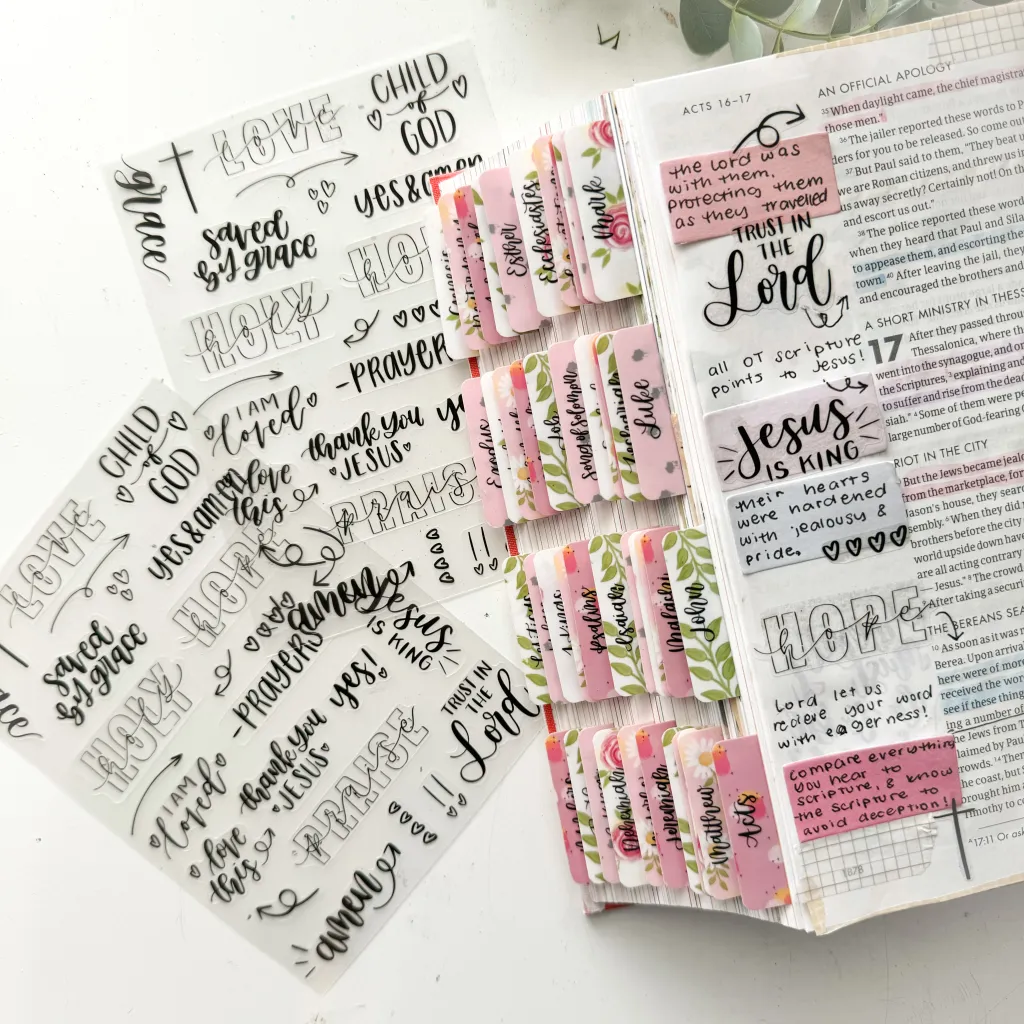 CHILD
of
GOD
LOVE
grace
yes & amen
saved
by grace
HOPE
hope
HOLY
holy
-PRAYER
I AM
loved
thank you
JESUS
love
this
PRAISE
praise
!!
amen
CHILD
of
GOD
LOVE
yes & amen
saved
by grace
HOPE
HOLY
holy
-PRAYERS
Jesus
IS KING
I AM
loved
thank you
JESUS
yes!
TRUST IN
THE
Lord
PRAISE
praise
!!
love
this
amen
Esther
Ecclesiastes
Mark
Exodus
Job
Song of Solomon
Luke
Psalms
Isaiah
Malachi
John
Matthew
Acts
ACTS 16–17
the lord was
with them,
protecting them
as they travelled
TRUST IN
THE
Lord
all OT scripture
points to Jesus!
Jesus
IS KING
their hearts
were hardened
with jealousy &
pride.
HOPE
hope
lord let us
recieve your word
with eagerness!
compare everything
you hear to
scripture, & know
the scripture to
avoid deception!
1878
AN OFFICIAL APOLOGY
35 When daylight came, the chief magistra
those men."
36 The jailer reported these words to P
ders for you to be released. So come ou
37 But Paul said to them, "They beat u
we are Roman citizens, and threw us in
us away secretly? Certainly not! On th
and escort us out."
38 The police reported these word
when they heard that Paul and Sila
to appease them, and escorting the
town. 40 After leaving the jail, they
and encouraged the brothers and
A SHORT MINISTRY IN THESS
17 After they passed throu
Thessalonica, where the
went into the synagogue, and on
the Scriptures, 3 explaining and
to suffer and rise from the dead
siah." 4 Some of them were pe
large number of God-fearing
RIOT IN THE CITY
But the Jews became jealo
from the marketplace, for
Jason's house, they sear
sembly. 6 When they did
brothers before the city
world upside down have
are all acting contrary
— Jesus." 8 The crowd
After taking a securi
THE BEREANS SEA
10 As soon as it was n
Berea. Upon arriva
here were of more
received the word
see if these thing
ing a number of
the Jews from T
claimed by Paul
rowds. 14 Then
he coast, but
brought him a
Timothy to co
17:11 Or as